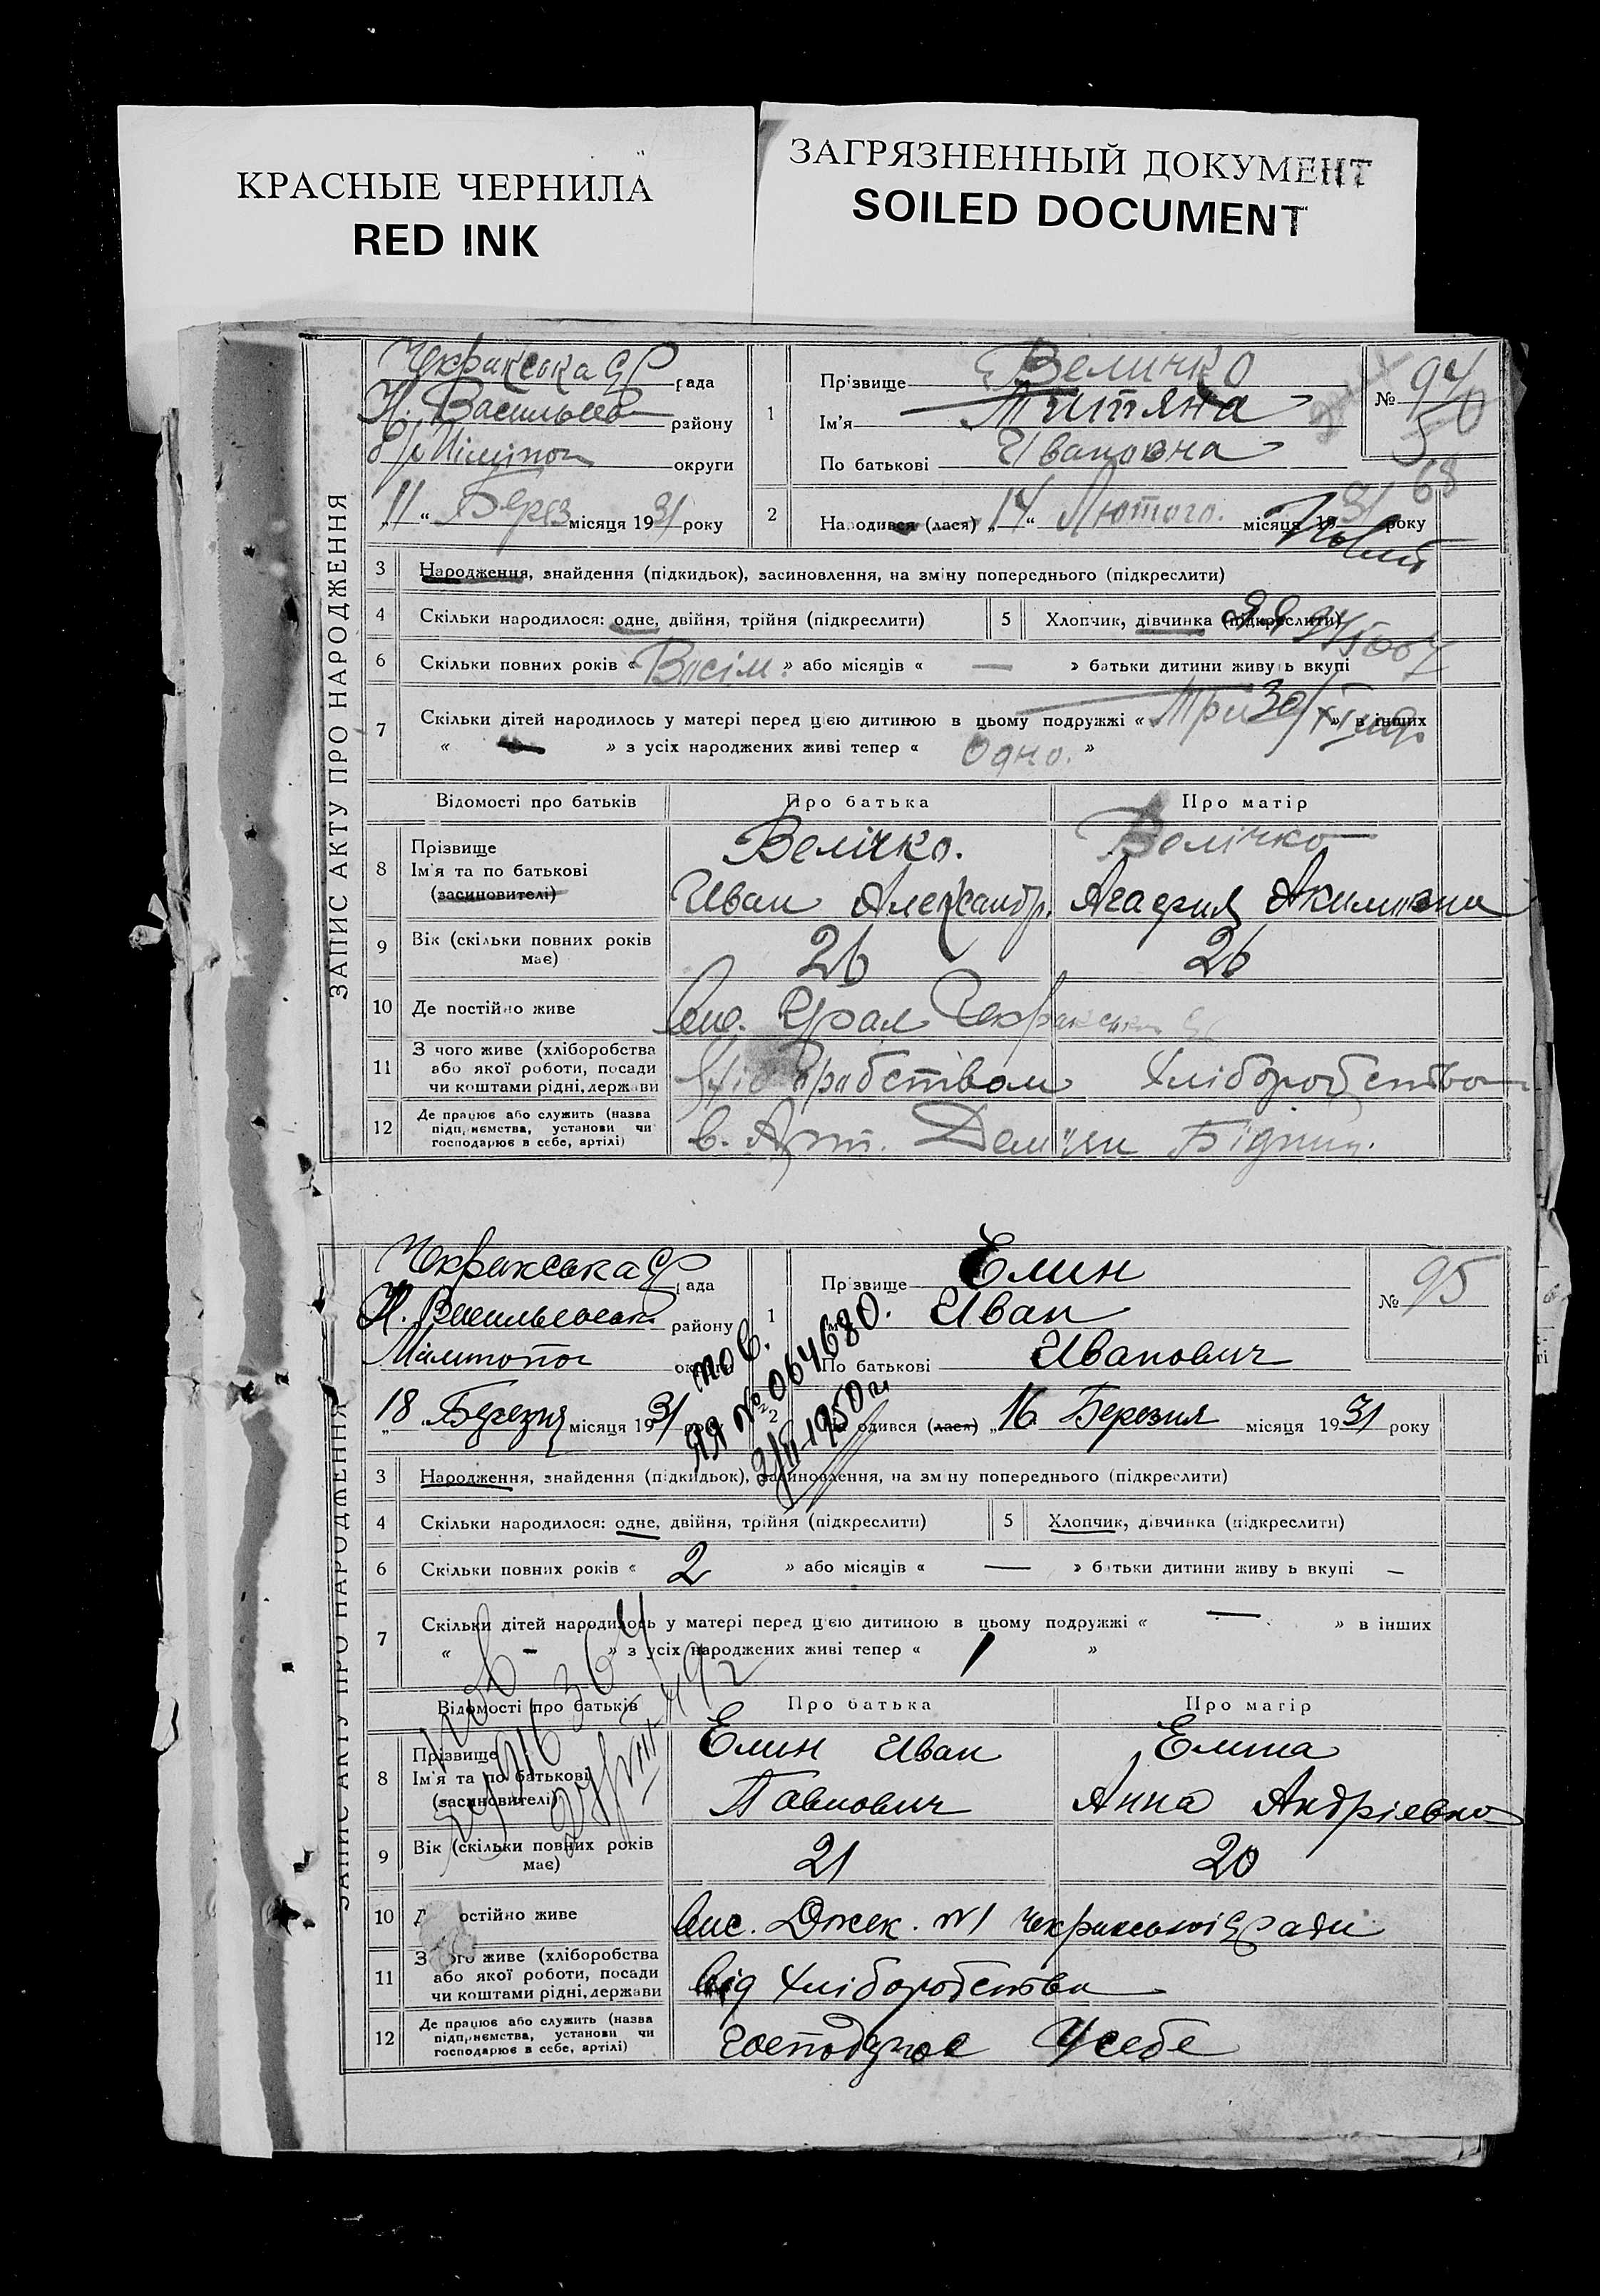 КРАСНЫЕ ЧЕРНИЛА
RED INK
ЗАГРЯЗНЕННЫЙ ДОКУМЕНТ
SOILED DOCUMENT
ЗАПИС АКТУ ПРО НАРОДЖЕННЯ
Чекракська рада
Н. Васильев району
округи
„11“ Берез місяця 1931 року
1
Прізвище Величко
Ім'я Титяна
По батькові Ивановна
№ 94
68
2
Народився (лася) „14“ Лютого. місяця 1931 року
3 Народження, знайдення (підкидьок), засиновлення, на зміну попереднього (підкреслити)
4 Скільки народилося: одне, двійня, трійня (підкреслити)
5 Хлопчик, дівчинка (підкреслити)
6 Скільки повних років « Восім. » або місяців « — » батьки дитини живуть вкупі
7 Скільки дітей народилось у матері перед цією дитиною в цьому подружжі « Три » в інших
« » з усіх народжених живі тепер « Одно. »
Відомості про батьків Про батька Про матір
8 Прізвище
Ім'я та по батькові
(засиновителі)
Велічко. Велічко
Иван Александр. Агафия Акимовна
9 Вік (скільки повних років має) 26 26
10 Де постійно живе Вис. Урал Чекракськ
11 З чого живе (хліборобства
або якої роботи, посади
чи коштами рідні, держави
Хліборобством Хліборобство
12 Де працює або служить (назва
підприємства, установи чи
господарює в себе, артілі)
в. Арт. Демян Бідний.
ЗАПИС АКТУ ПРО НАРОДЖЕННЯ
Чекракська рада
Н. Васильевськ району
Мілитопол округи
„18 Березня місяця 1931
1
Прізвище Елин
Иван
По батькові Иванович
№ 95
пов.
ЯЯ № 064680.
1950 г
2
одився (лася) „16 Березня місяця 1931 року
3 Народження, знайдення (підкидьок), засиновлення, на зміну попереднього (підкреслити)
4 Скільки народилося: одне, двійня, трійня (підкреслити)
5 Хлопчик, дівчинка (підкреслити)
6 Скільки повних років « 2 » або місяців « — » батьки дитини живуть вкупі —
7 Скільки дітей народилось у матері перед цією дитиною в цьому подружжі « — » в інших
« - » з усіх народжених живі тепер « 1 »
Відомості про батьків Про батька Про матір
8 Прізвище
Ім'я та по батькові
(засиновителі)
Елин Иван Елина
Павлович Анна Андріевна
9 Вік (скільки повних років має) 21 20
10 постійно живе Вис. Джек. №1 Чекракської С ради
11 З чого живе (хліборобства
або якої роботи, посади
чи коштами рідні, держави
від хліборобства
12 Де працює або служить (назва
підприємства, установи чи
господарює в себе, артілі)
Господарює У себе